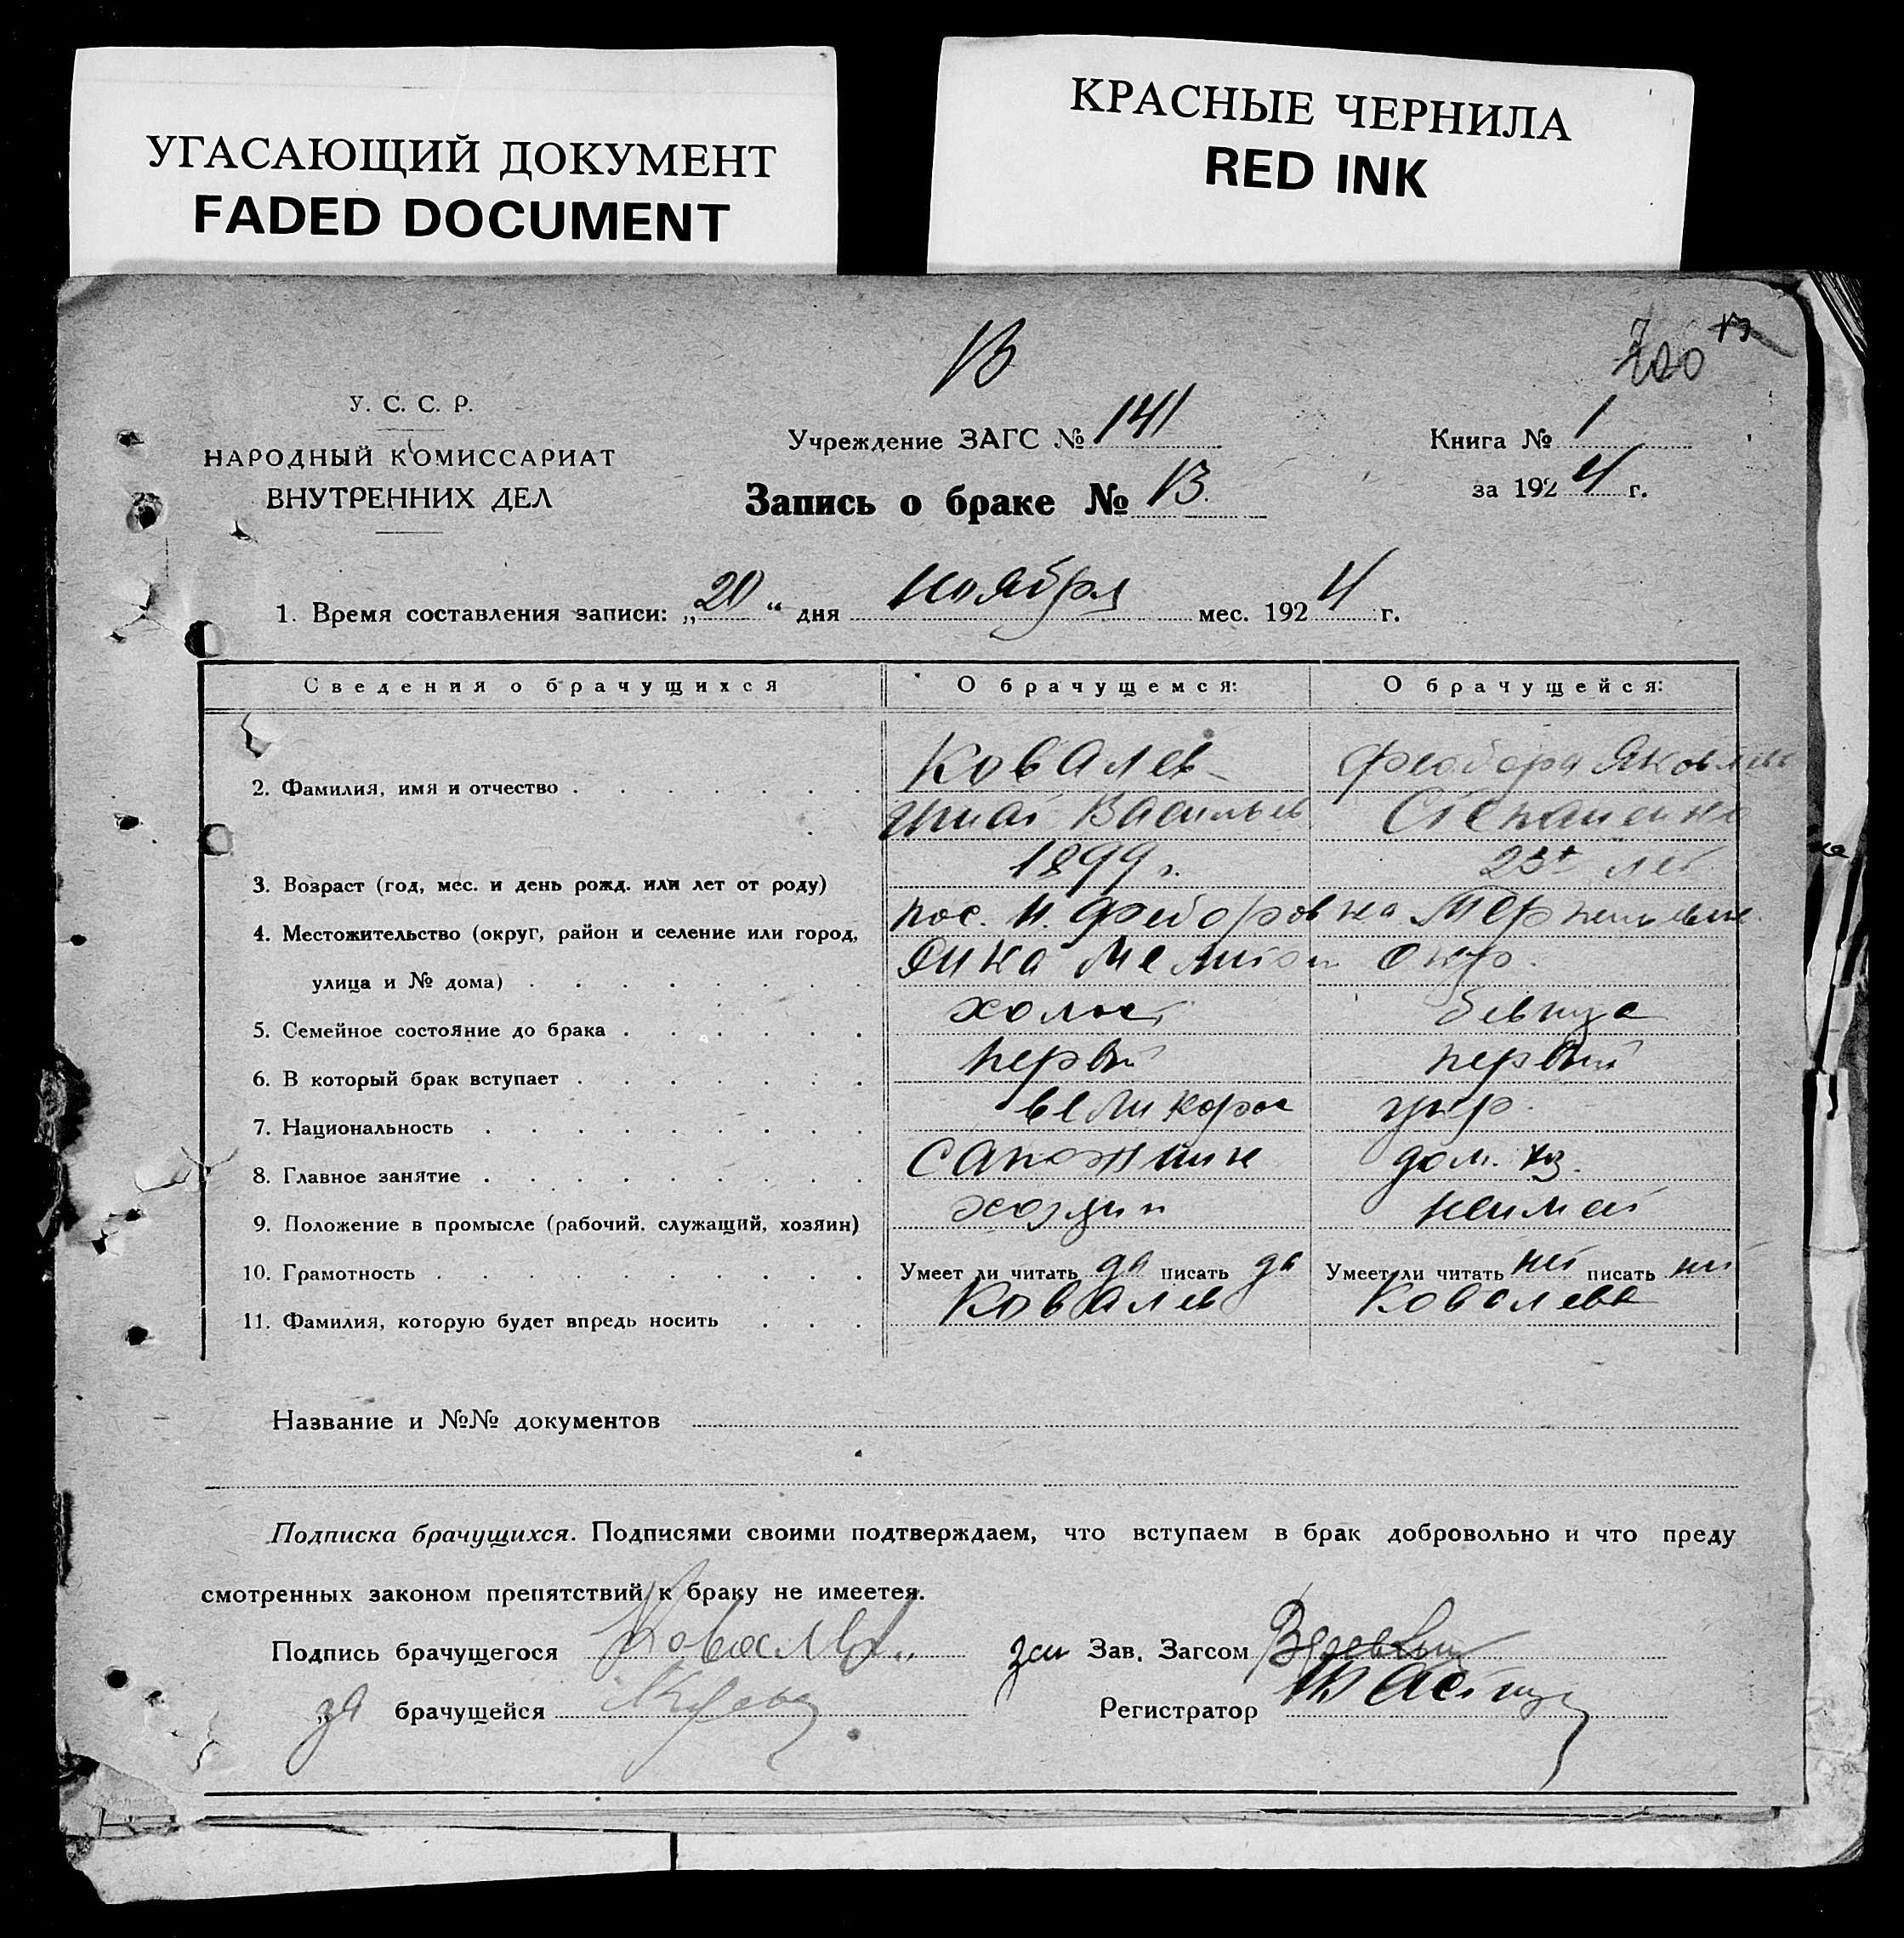 УГАСАЮЩИЙ ДОКУМЕНТ
FADED DOCUMENT
КРАСНЫЕ ЧЕРНИЛА
RED INK
13
У. С. С. Р.
НАРОДНЫЙ КОМИССАРИАТ
ВНУТРЕННИХ ДЕЛ
Учреждение ЗАГС № 141
Запись о браке № 13.
Книга № 1
за 1924 г.
1. Время составления записи: „20“ дня ноября мес. 1924 г.
Сведения о брачущихся О брачущемся: О брачущейся:
2. Фамилия, имя и отчество Ковалев Феодора Яковлев
Игнат Васильев Степаненко
3. Возраст (год, мес. и день рожд. или лет от роду) 1899 г. лет
4. Местожительство (округ, район и селение или город, пос. Н. Федоровка
улица и № дома) Мелитоп Окр.
5. Семейное состояние до брака холост девица
6. В который брак вступает первый первый
7. Национальность великорос укр.
8. Главное занятие сапожник дом. хоз.
9. Положение в промысле (рабочий, служащий, хозяин) хозяин
10. Грамотность Умеет ли читать да писать да Умеет ли читать нет писать нет
11. Фамилия, которую будет впредь носить Ковалев Ковалева
Название и №№ документов
Подписка брачущихся. Подписями своими подтверждаем, что вступаем в брак добровольно и что преду
смотренных законом препятствий к браку не имеетея.
Подпись брачущегося Ковалев Зав. Загсом
за брачущейся Регистратор